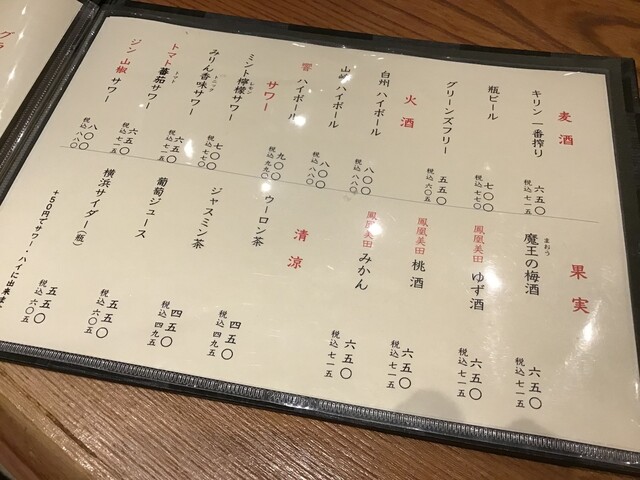 麦酒
キリン 一番搾り 六五〇 税込 七一五
瓶ビール 七〇〇 税込 七七〇
グリーンズフリー 五五〇 税込 六〇五
火酒
白州 ハイボール 八〇〇 税込 八八〇
山崎 ハイボール 八〇〇 税込 八八〇
響 ハイボール 九〇〇 税込 九九〇
サワー
ミント檸檬サワー 七〇〇 税込 七七〇
みりん香味サワー 六五〇 税込 七一五
トマト蕃茄サワー 六五〇 税込 七一五
ジン山椒サワー 八〇〇 税込 八八〇
果実
魔王の梅酒 まおう 六五〇 税込 七一五
鳳凰美田 ゆず酒 六五〇 税込 七一五
鳳凰美田 桃酒 六五〇 税込 七一五
鳳凰美田 みかん 六五〇 税込 七一五
清涼
ウーロン茶 四五〇 税込 四九五
ジャスミン茶 四五〇 税込 四九五
葡萄ジュース 五五〇 税込 六〇五
横浜サイダー(瓶) 五五〇 税込 六〇五
+50円でサワー・ハイに出来ま
グラ